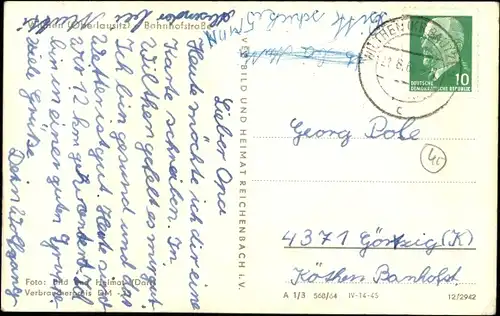 Wilthen (Oberlausitz) Bahnhofstraße
Bitte schickt mir
Lieber Opa
Heute möchte ich dir eine
Karte schreiben. In
Wilthen gefelt es mir gut
Ich bin gesund und das
Wetter ist gut. Heute sind
wir 12 km gewandert. Ich
bin in einer guten Gruppe.
Viele Grüße
Dein Wolfgang
Foto: Bild und Heimat (Darr)
Verbraucherpreis DM
VEB BILD UND HEIMAT REICHENBACH i. V.
WILTHEN
10
DEUTSCHE
DEMOKRATISCHE REPUBLIK
c
Georg Pole
40
4371 Görzig (K)
Köthen Banhofst.
A 1/3 568/64 IV-14-45 12/2942